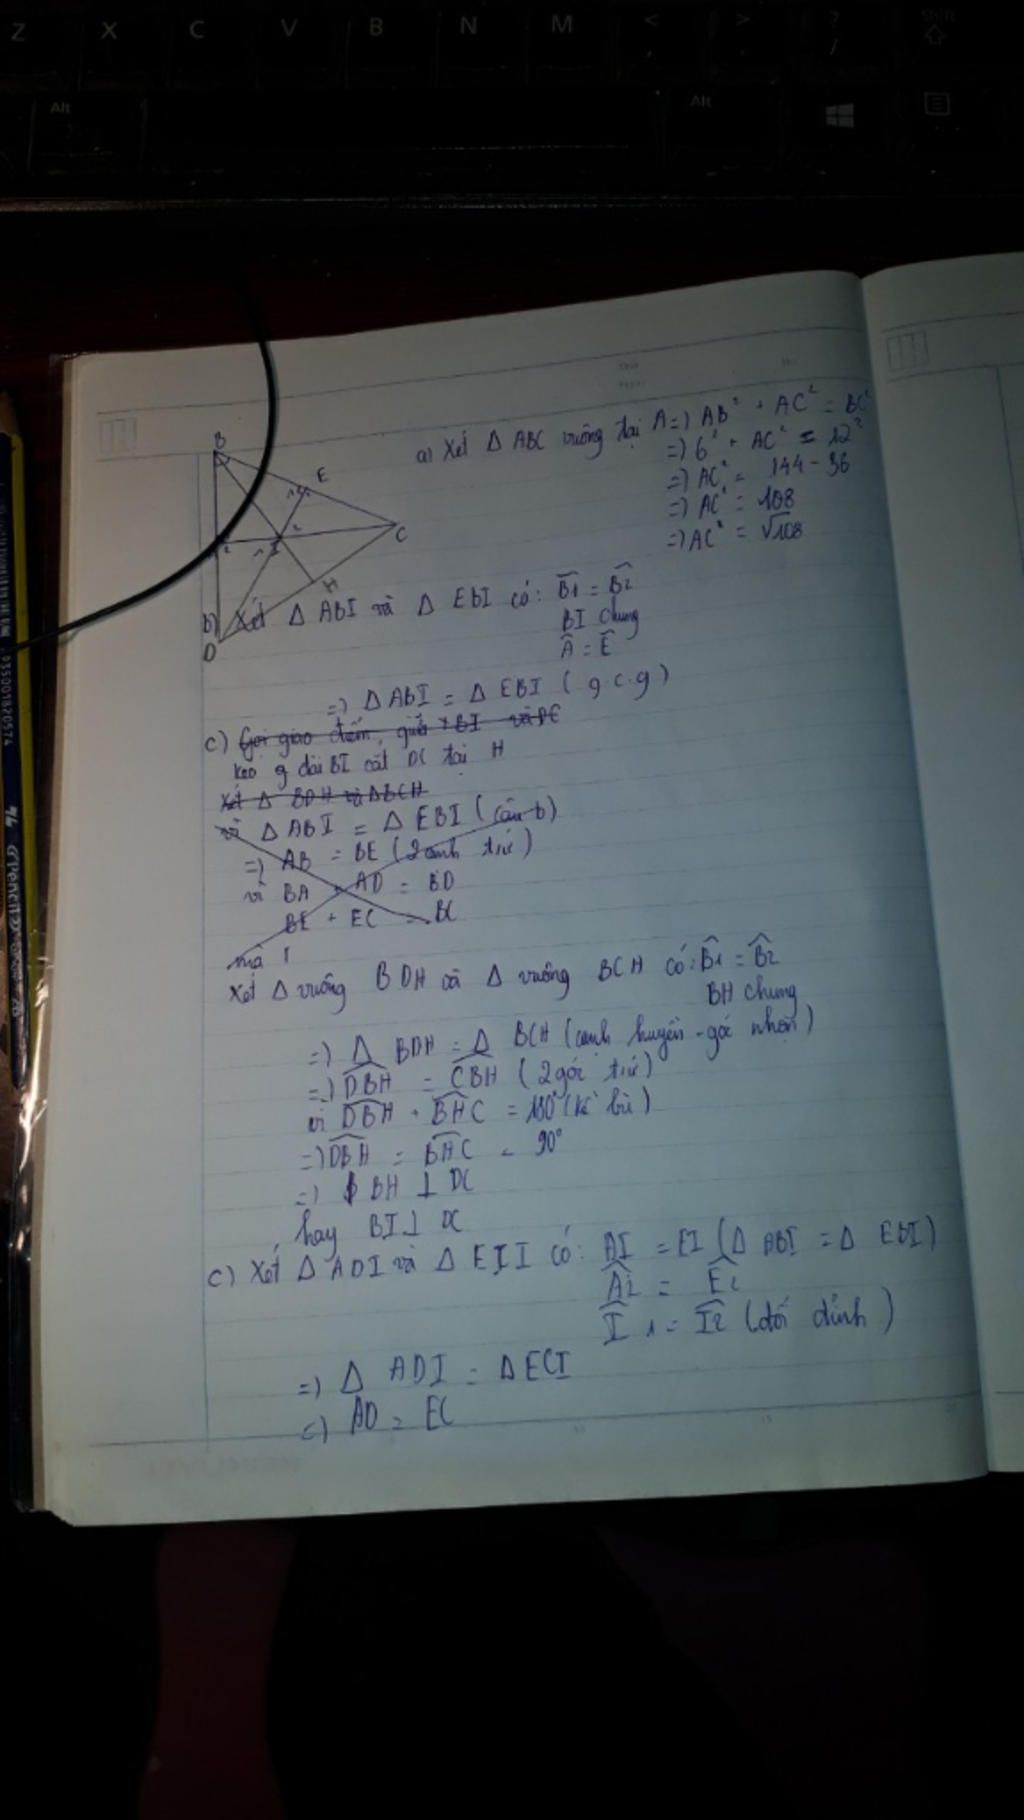 Z X C V B N M < , > . ? / Shift
Alt Alt
a) Xét Δ ABC vuông tại A => AB² + AC² = BC²
=> 6² + AC² = 12²
=> AC² = 144 - 36
=> AC² = 108
=> AC² = √108
B
E
C
H
D
b) Xét Δ ABI và Δ EBI có: B1 = B2
BI chung
A = E
=> Δ ABI = Δ EBI ( g.c.g )
c) Gọi giao điểm, giữa BI và DC
kéo dài BI cắt DC tại H
Xét Δ BDH và Δ BCH
vì Δ ABI = Δ EBI ( câu b)
=> AB = BE ( 2 cạnh t.ư )
vì BA + AD = BD
BE + EC = BC
mà
Xét Δ vuông BDH và Δ vuông BCH có: B1 = B2
BH chung
=> Δ BDH = Δ BCH ( cạnh huyền - góc nhọn )
=> DBH = CBH ( 2 góc t.ư )
vì DBH + BHC = 180° ( kề bù )
=> DBH = BHC = 90°
=> BH ⊥ DC
hay BI ⊥ DC
c) Xét Δ ADI và Δ EII có: AI = EI ( Δ ABI = Δ EBI )
A2 = E2
I1 = I2 ( đối đỉnh )
=> Δ ADI = Δ ECI
=> AD = EC